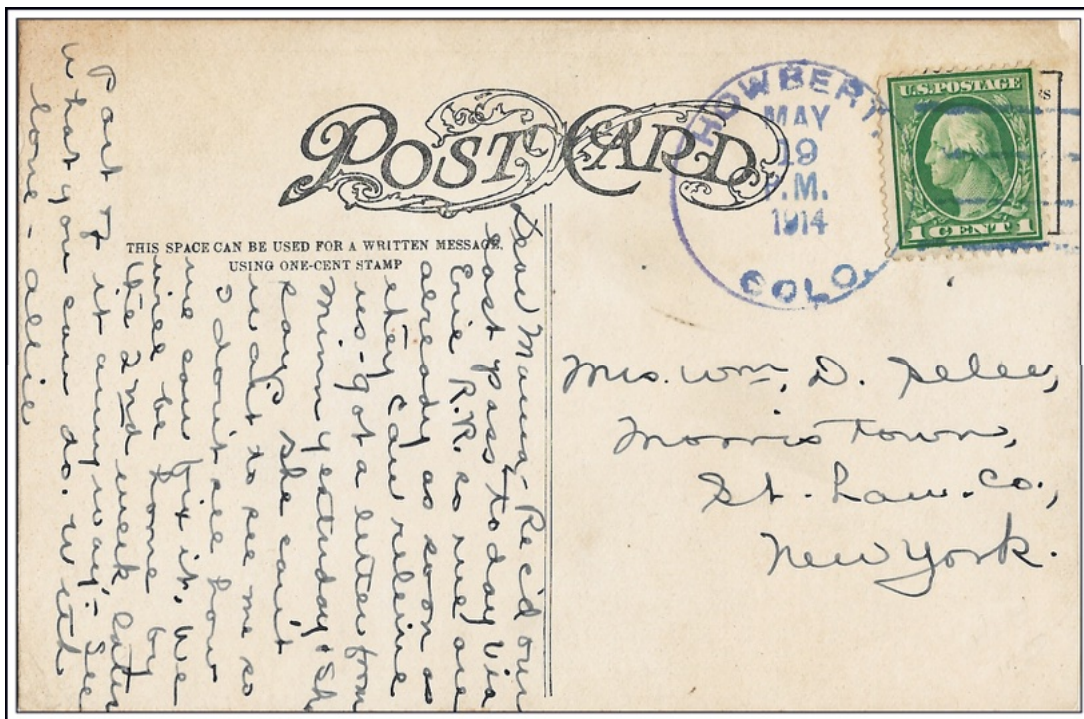 POST CARD
THIS SPACE CAN BE USED FOR A WRITTEN MESSAGE,
USING ONE-CENT STAMP
HOWBERT,
MAY
19
P.M.
1914
COLO.
U.S.POSTAGE
1 CENT 1
Dear Mama, - Rec'd our
east pass today via
Erie R.R. so we are
already as soon as
they can relieve
us - got a letter from
Minny yesterday. Sh
says she cant
wait to see me so
I don't see how
we can fix it. We
will be home by
the 2nd week latter
Part of it anyway - See
what you can do. with
love - allie
Mrs. Wm. D.
Morristown,
St. Law. Co.,
New York.